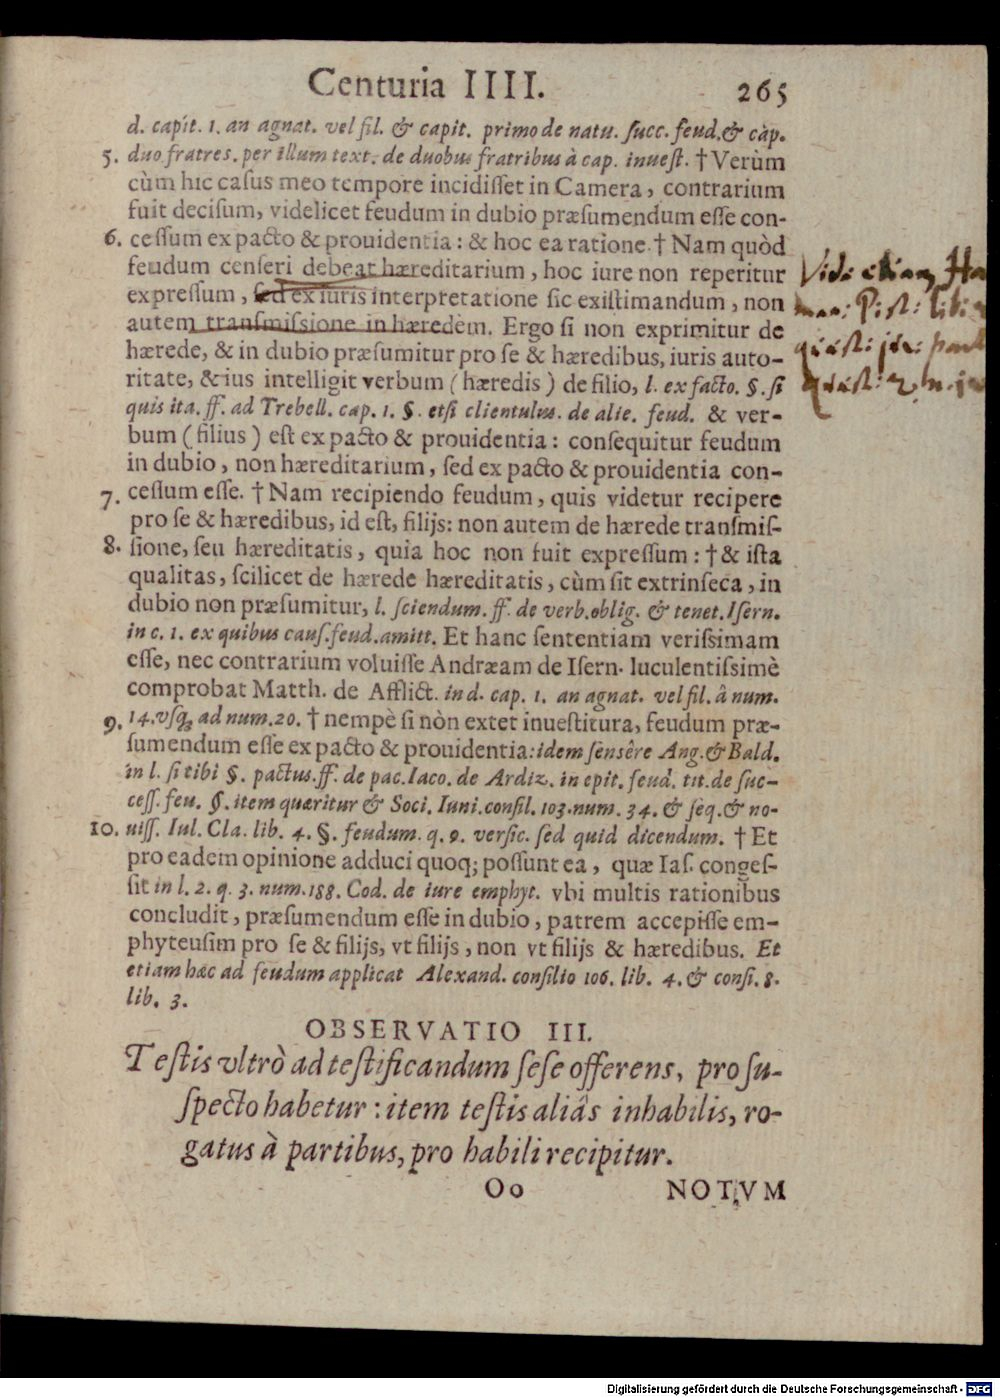 Centuria IIII. 265
d. capit. 1. an agnat. vel fil. & capit. primo de natu. ſucc. feud. & càp.
5. duo fratres. per illum text. de duobus fratribus à cap. inueſt. † Verùm
cùm hic caſus meo tempore incidiſſet in Camera, contrarium
fuit deciſum, videlicet feudum in dubio præſumendum eſſe con-
6. ceſſum ex pacto & prouidentia: & hoc ea ratione. † Nam quòd
feudum cenſeri debeat hæreditarium, hoc iure non reperitur
expreſſum, ſed ex iuris interpretatione ſic exiſtimandum, non
autem tranſmiſsione in hæredem. Ergo ſi non exprimitur de
hærede, & in dubio præſumitur pro ſe & hæredibus, iuris auto-
ritate, & ius intelligit verbum (hæredis) de filio, l. ex facto. §. ſi
quis ita. ff. ad Trebell. cap. 1. §. etſi clientulus. de alie. feud. & ver-
bum (filius) eſt ex pacto & prouidentia: conſequitur feudum
in dubio, non hæreditarium, ſed ex pacto & prouidentia con-
7. ceſſum eſſe. † Nam recipiendo feudum, quis videtur recipere
pro ſe & hæredibus, id eſt, filijs: non autem de hærede tranſmiſ-
8. ſione, ſeu hæreditatis, quia hoc non fuit expreſſum: † & iſta
qualitas, ſcilicet de hærede hæreditatis, cùm ſit extrinſeca, in
dubio non præſumitur, l. ſciendum. ff. de verb. oblig. & tenet. Iſern.
in c. 1. ex quibus cauſ. feud. amitt. Et hanc ſententiam veriſsimam
eſſe, nec contrarium voluiſſe Andræam de Iſern. luculentiſsimè
comprobat Matth. de Afflict. in d. cap. 1. an agnat. vel fil. â num.
9. 14. vſq; ad num. 20. † nempè ſi nòn extet inueſtitura, feudum præ-
ſumendum eſſe ex pacto & prouidentia: idem ſensêre Ang. & Bald.
in l. ſi tibi §. pactus. ff. de pac. Iaco. de Ardiz. in epit. feud. tit. de ſuc-
ceſſ. feu. §. item quæritur & Soci. Iuni. conſil. 103. num. 34. & ſeq. & no-
10. uiſſ. Iul. Cla. lib. 4. §. feudum. q. 9. verſic. ſed quid dicendum. † Et
pro eadem opinione adduci quoq; poſſunt ea, quæ Iaſ. congeſ-
ſit in l. 2. q. 3. num. 188. Cod. de iure emphyt. vbi multis rationibus
concludit, præſumendum eſſe in dubio, patrem accepiſſe em-
phyteuſim pro ſe & filijs, vt filijs, non vt filijs & hæredibus. Et
etiam hæc ad feudum applicat Alexand. conſilio 106. lib. 4. & conſi. 8.
lib. 3.
OBSERVATIO III.
Teſtis vltrò ad teſtificandum ſeſe offerens, pro ſu-
ſpecto habetur: item teſtis aliâs inhabilis, ro-
gatus à partibus, pro habili recipitur.
Oo NOTVM
Vide etiam Ha
Pist: lib:
quæst:
quæst: 2. n.
Digitalisierung gefördert durch die Deutsche Forschungsgemeinschaft - DFG